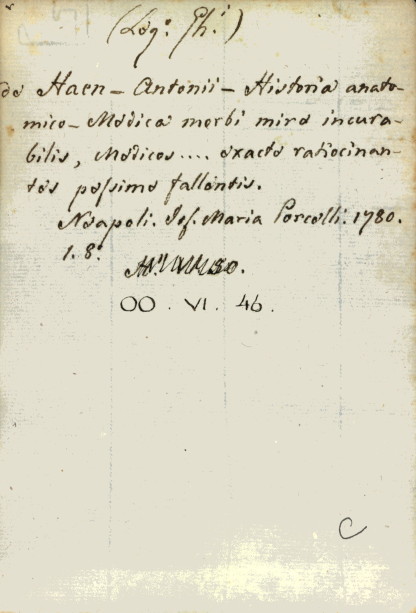 (Leg.º Gh.i)
de Haen – Antonii – Historia anato-
mico – Medica morbi mire incura-
bilis, Medicos .... exacte ratiocinan-
tes pessime fallentis.
Neapoli. Jos. Maria Porcelli. 1780.
1. 8.º
OO . VI . 46.
C